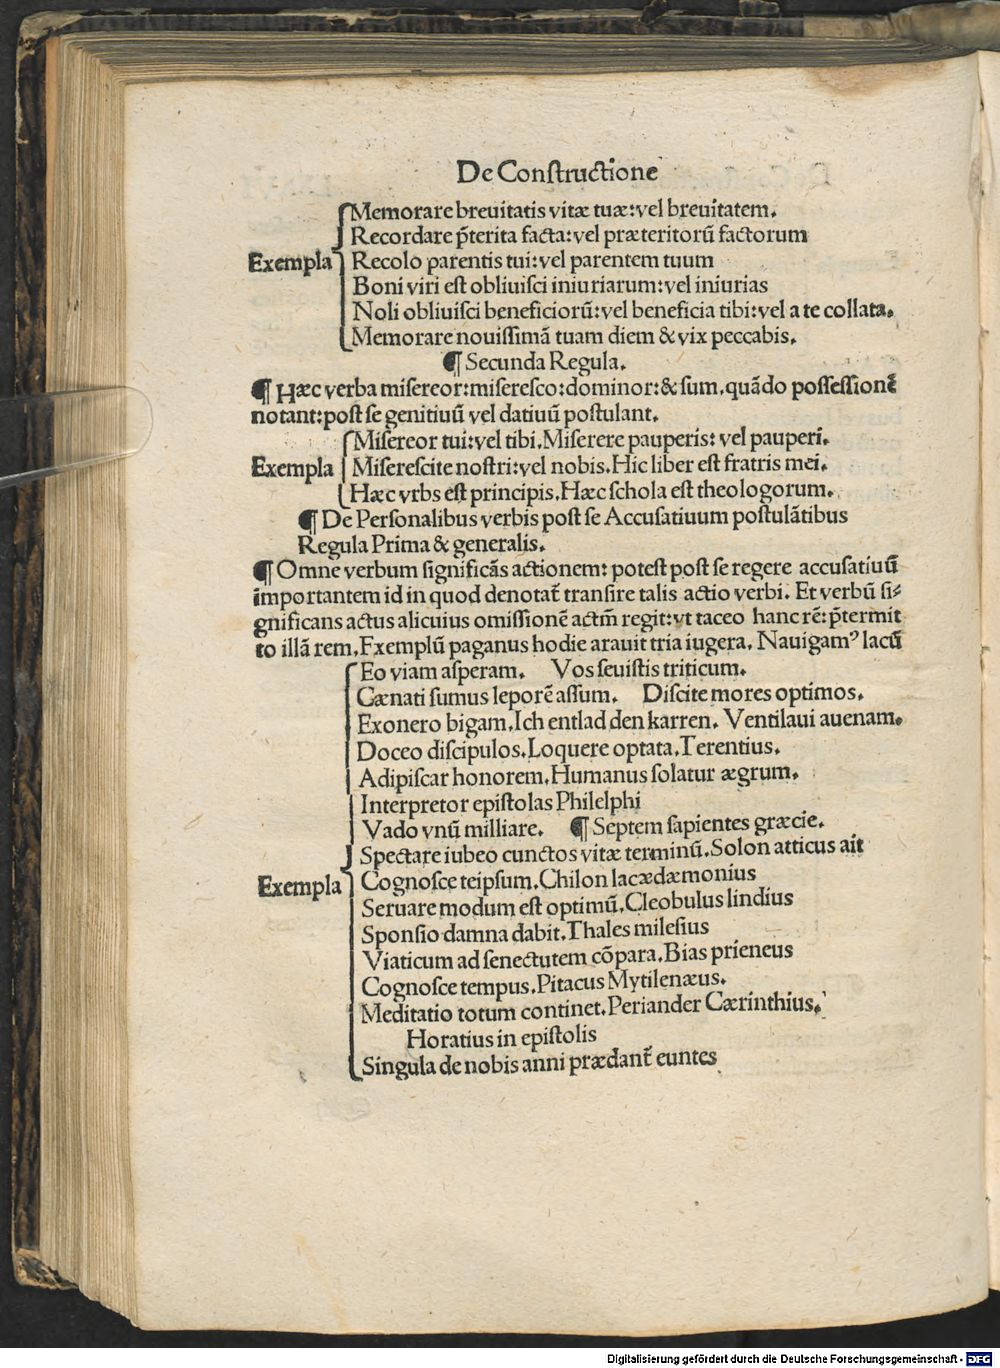 De Constructione
Memorare breuitatis vitæ tuæ:vel breuitatem.
Recordare p̄terita facta:vel præteritorū factorum
Exempla Recolo parentis tui:vel parentem tuum
Boni viri est obliuisci iniuriarum:vel iniurias
Noli obliuisci beneficiorū:vel beneficia tibi:vel a te collata.
Memorare nouissimā tuam diem & vix peccabis.
¶ Secunda Regula.
¶ Hæc verba misereor:miseresco:dominor:& sum,quādo possessionē
notant:post se genitiuū vel datiuū postulant.
Misereor tui:vel tibi.Miserere pauperis: vel pauperi.
Exempla Miserescite nostri:vel nobis.Hic liber est fratris mei.
Hæc vrbs est principis.Hæc schola est theologorum.
¶ De Personalibus verbis post se Accusatiuum postulātibus
Regula Prima & generalis.
¶ Omne verbum significās actionem: potest post se regere accusatiuū
importantem id in quod denotat̄ transire talis actio verbi. Et verbū si⸗
gnificans actus alicuius omissionē actm̄ regit:vt taceo hanc rē: p̄termit
to illā rem.Exemplū paganus hodie arauit tria iugera. Nauigamꝰ lacū
Eo viam asperam. Vos seuistis triticum.
Cænati sumus leporē assum. Discite mores optimos.
Exonero bigam.Ich entlad den karren. Ventilaui auenam.
Doceo discipulos.Loquere optata.Terentius.
Adipiscar honorem.Humanus solatur ægrum.
Interpretor epistolas Philelphi
Vado vnū milliare. ¶ Septem sapientes græcie.
Spectare iubeo cunctos vitæ terminū.Solon atticus ait
Exempla Cognosce teipsum.Chilon lacædæmonius
Seruare modum est optimū.Cleobulus lindius
Sponsio damna dabit.Thales milesius
Viaticum ad senectutem cōpara.Bias prieneus
Cognosce tempus.Pitacus Mytilenæus.
Meditatio totum continet.Periander Cærinthius.
Horatius in epistolis
Singula de nobis anni prædant̄ euntes
Digitalisierung gefördert durch die Deutsche Forschungsgemeinschaft - DFG